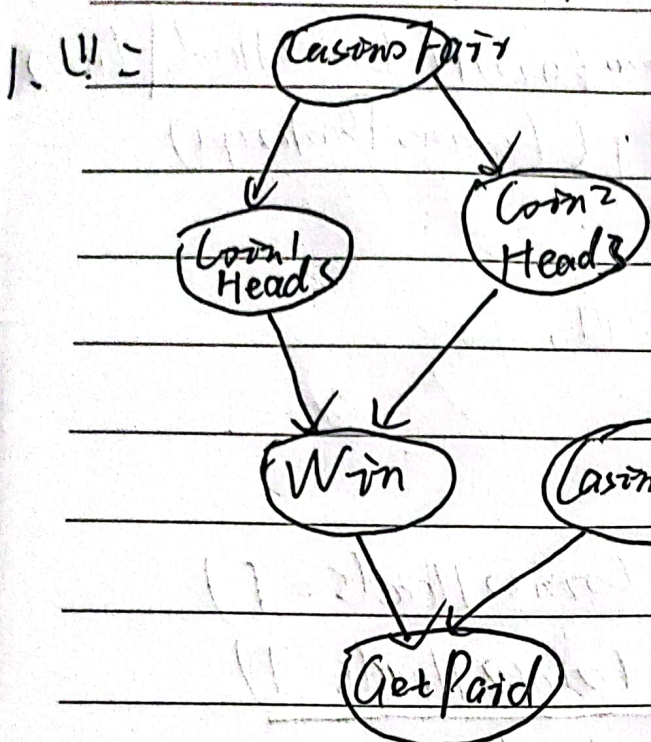 1. (1):
Casino Fair
Coin1
Heads
Coin2
Heads
Win
Casin
Get Paid